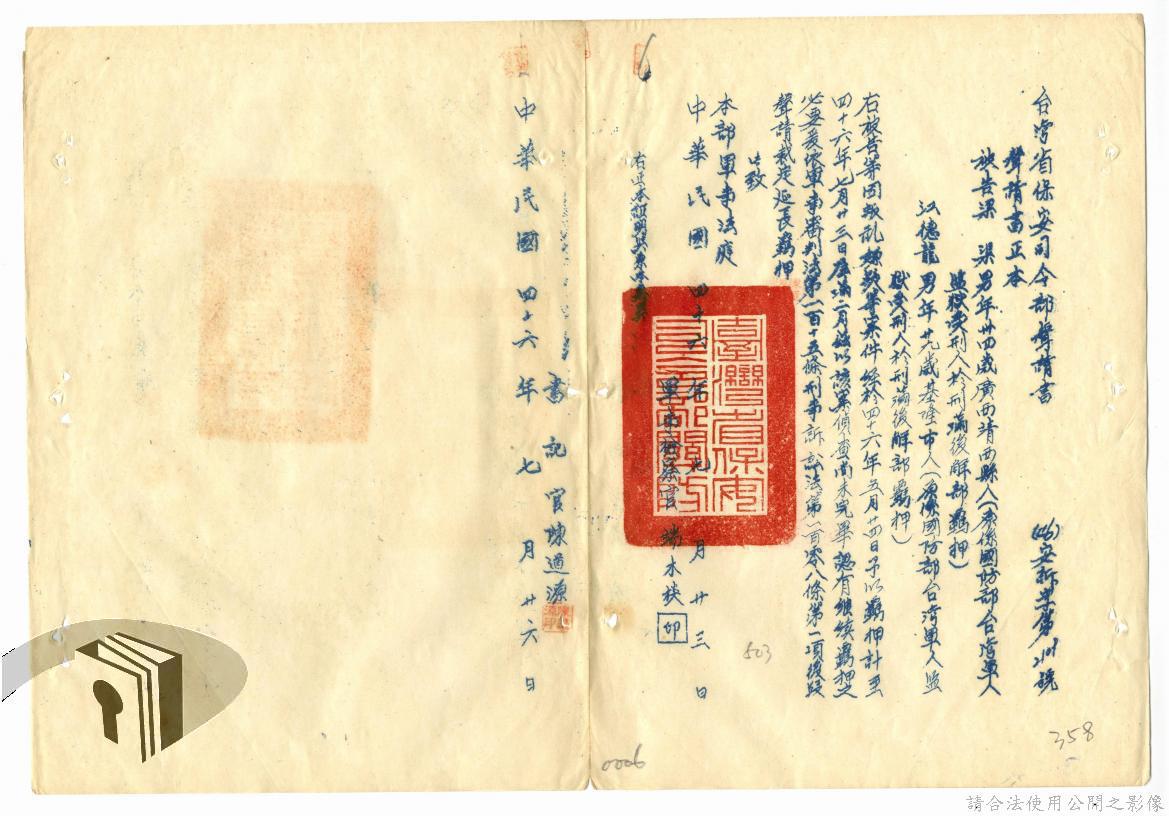 台灣省保安司令部聲請書
(46)安訴字第2101號
聲請書正本
被告梁 渠男年卅四歲廣西靖西縣人(原係國防部台灣軍人
監獄受刑人於刑滿後解部羈押)
江德龍 男年廿九歲基隆市人(原係國防部台灣軍人監
獄受刑人於刑滿後解部羈押)
右被告等因叛乱嫌疑等案件經於四十六年五月廿四日予以羈押計至
四十六年七月廿三日屆滿二月茲以該案偵查尚未完畢認有繼續羈押之
必要爰依軍事審判法第一百十五條刑事訴訟法第一百零八條第一項後段
聲請裁定延長羈押
此致
本部軍事法庭
中華民國四十六年七月廿三日
軍事檢察官 端木棪 印
右正本證明與原本無異
書記官陳道源
中華民國四十六年七月廿六日
503
358
0006
請合法使用公開之影像